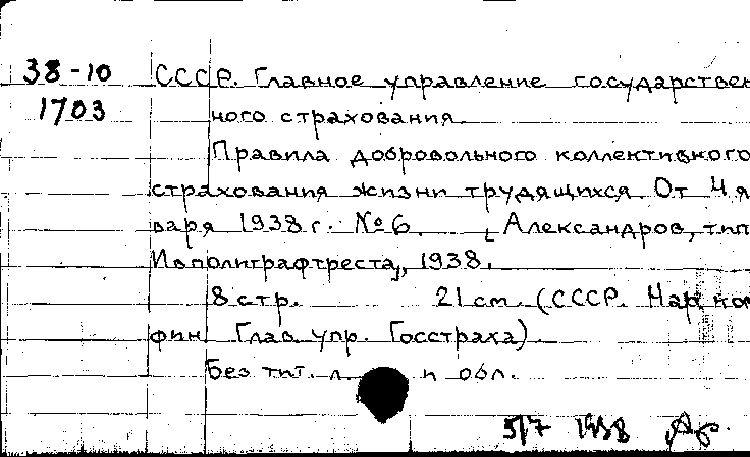 38-10 СССР. Главное управление государствен
1703 ного страхования.
Правила добровольного коллективного
страхования жизни трудящихся. От 4 я
варя 1938 г. № 6. [Александров, тип.
Ивполиграфтреста], 1938.
8 стр. 21 см. (СССР. Нарком
фин Глав. упр. Госстраха).
Без тит. л. и обл.
5/7 1938